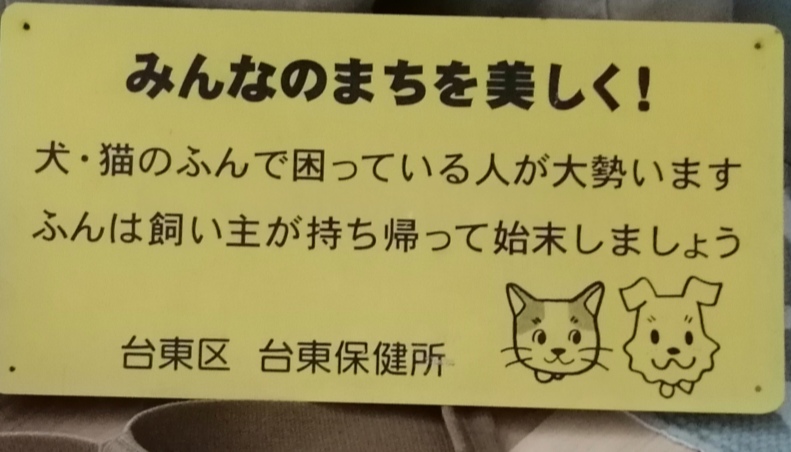 みんなのまちを美しく!
犬・猫のふんで困っている人が大勢います
ふんは飼い主が持ち帰って始末しましょう
台東区 台東保健所